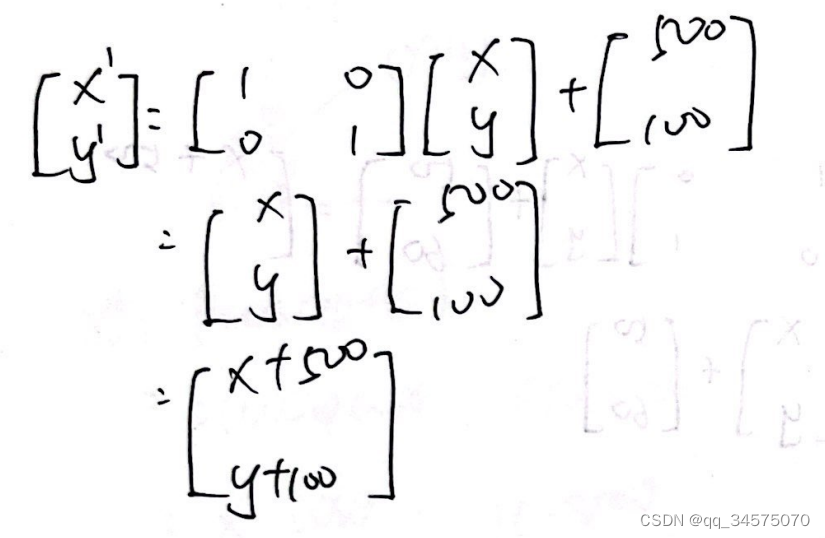 [x' y'] = [1 0 0 1] [x y] + [500 100]
= [x y] + [500 100]
= [x+500 y+100]
CSDN @qq_34575070